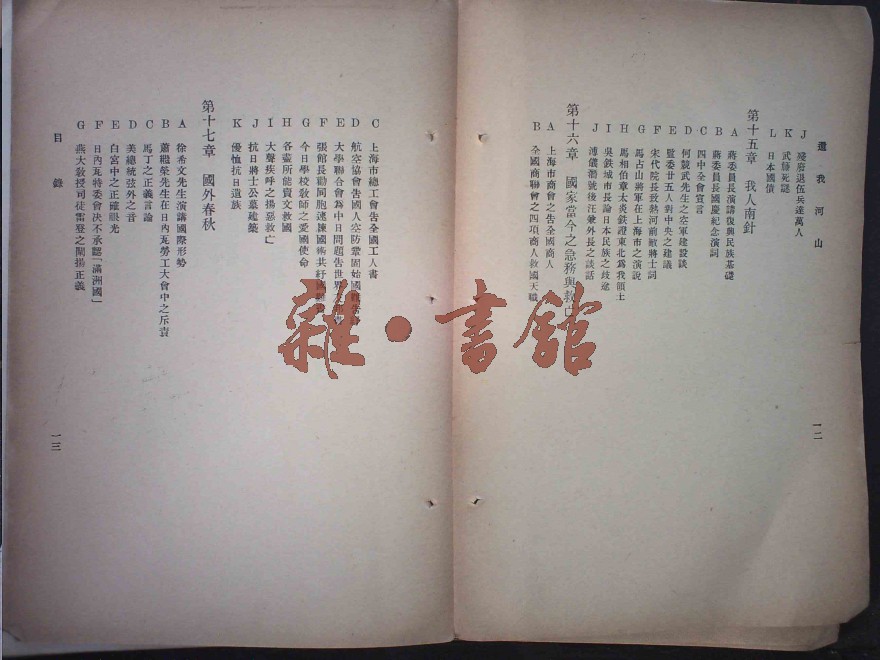 還我河山
J 殘廢退伍兵達萬人
K 武藤死謎
L 日本國債
第十五章 我人南針
A 蔣委員長演講復興民族基礎
B 蔣委員長國慶紀念演詞
C 四中全會宣言
D 何競武先生之空軍建設談
E 監委廿五人對中央之建議
F 宋代院長致熱河前敵將士詞
G 馬占山將軍在上海市之演說
H 馬相伯章太炎鉄證東北為我領土
I 吳鉄城市長論日本民族之歧途
J 溥儀僭號後汪兼外長之談話
第十六章 國家當今之急務與救亡
A 上海市商會之告全國商人
B 全國商聯會之四項商人救國天職
一二
C 上海市總工會告全國工人書
D 航空協會告國人空防鞏固始國
E 大學聯合會為中日問題告世界
F 張館長勸同胞速練國術共紓國難
G 今日學校敎師之愛國使命
H 各盡所能賣文救國
I 大聲疾呼之揚惡救亡
J 抗日將士公墓建築
K 優恤抗日遺族
第十七章 國外春秋
A 徐希文先生演講國際形勢
B 蕭繼榮先生在日內瓦勞工大會中之斥責
C 馬丁之正義言論
D 美總統弦外之音
E 白宮中之正確眼光
F 日內瓦特委會决不承認「滿洲國」
G 燕大敎授司徒雷登之闡揚正義
目錄
一三
雜·書舘